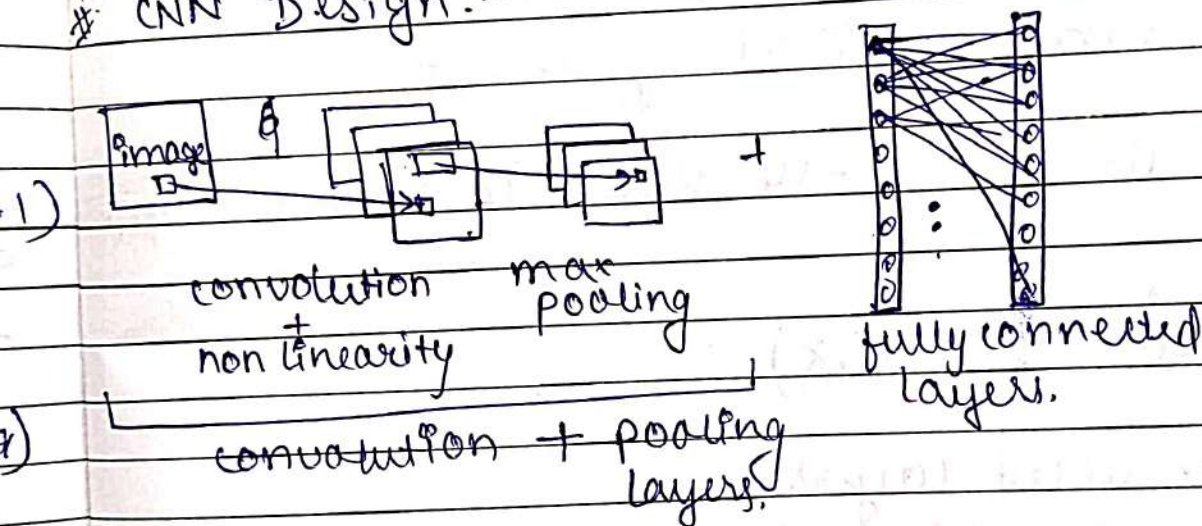 # CNN Design.
image
-1)
convolution
+
non linearity
max
pooling
+
fully connected
layers.
x)
convolution + pooling
layers.